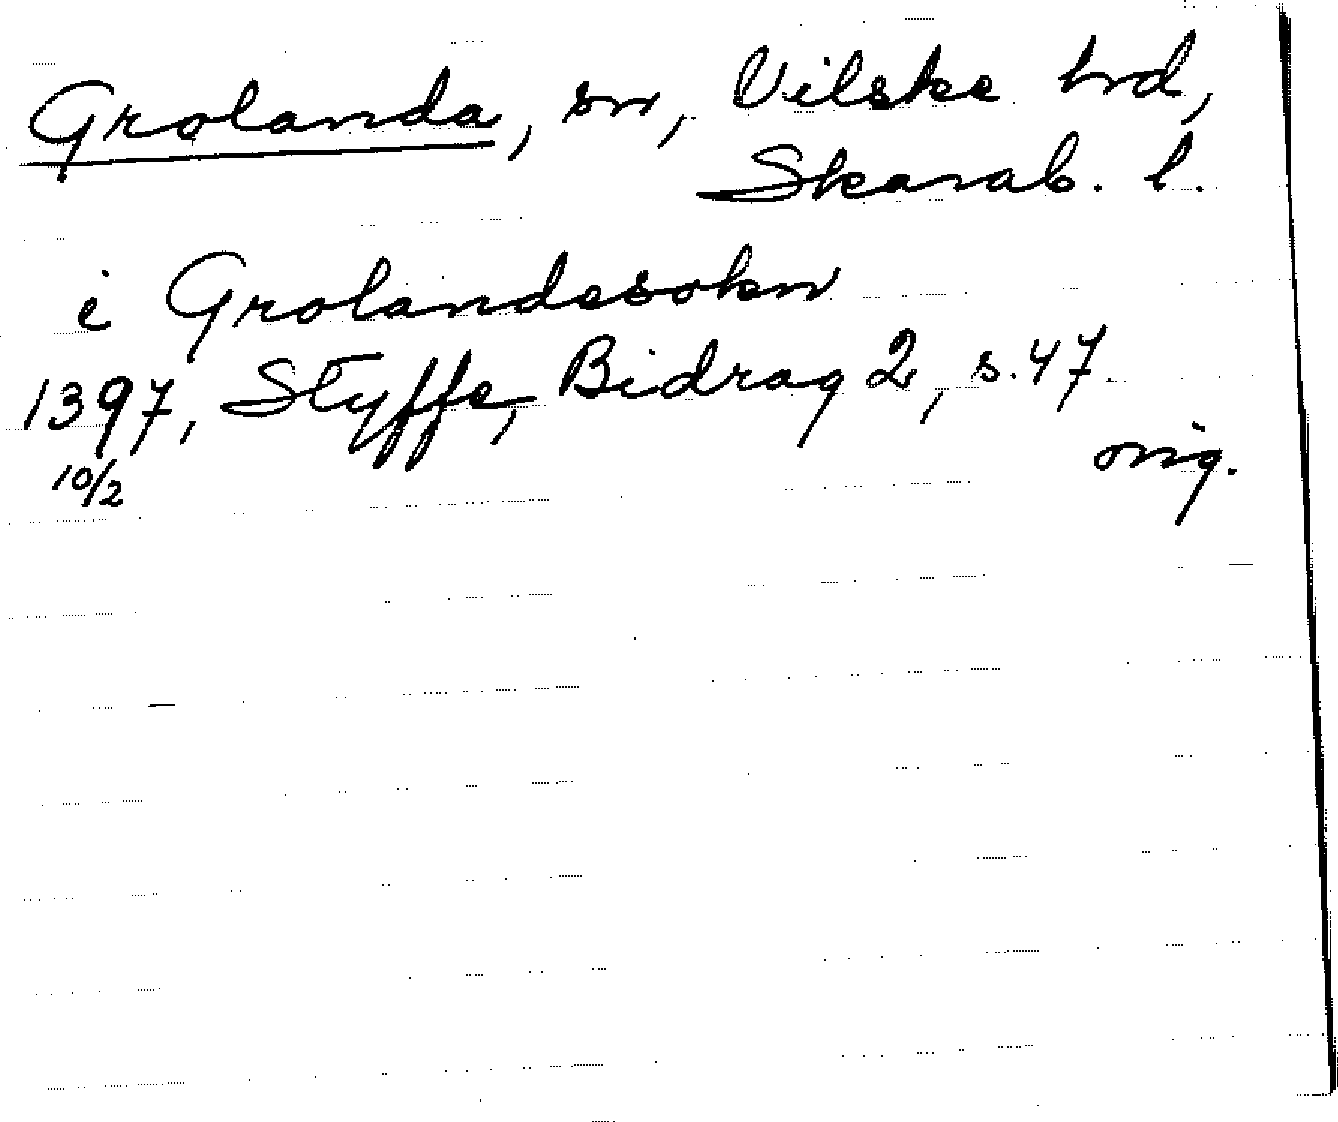 Grolanda, sn, Vilske hrd,
Skarab. l.
i Grolandasokn
1397, Styffe, Bidrag 2, s. 47
10/2
orig.